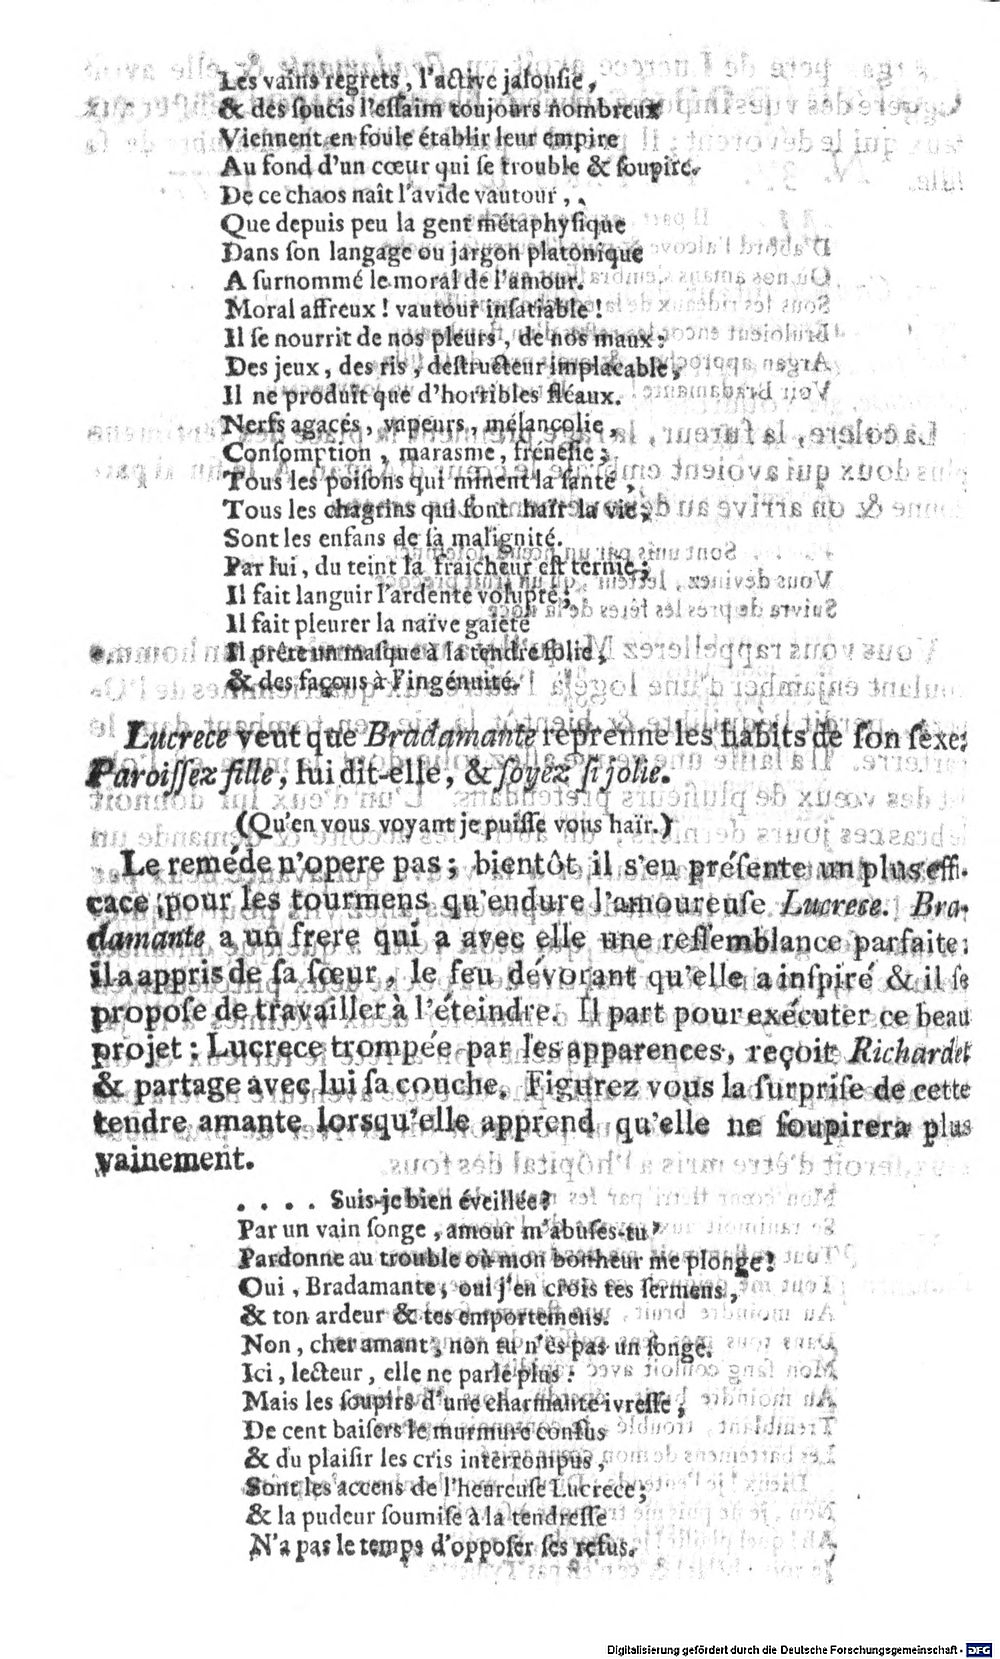 Les vains regrets, l'active jalousie,
& des soucis l'essaim toujours nombreux
Viennent en foule établir leur empire
Au fond d'un cœur qui se trouble & soupire.
De ce chaos naît l'avide vautour,
Que depuis peu la gent métaphysique
Dans son langage ou jargon platonique
A surnommé le moral de l'amour.
Moral affreux ! vautour insatiable !
Il se nourrit de nos pleurs, de nos maux :
Des jeux, des ris, destructeur implacable,
Il ne produit que d'horribles fléaux.
Nerfs agacés, vapeurs, mélancolie,
Consomption, marasme, frénésie ;
Tous les poisons qui minent la santé,
Tous les chagrins qui font haïr la vie,
Sont les enfans de sa malignité.
Par lui, du teint la fraîcheur est ternie ;
Il fait languir l'ardente volupté ;
Il fait pleurer la naïve gaieté
Il prête un masque à la tendre folie,
& des façons à l'ingénuité.
Lucrece veut que Bradamante reprenne les habits de son sexe ;
Paroissez fille, lui dit-elle, & soyez si jolie.
(Qu'en vous voyant je puisse vous haïr.)
Le remede n'opere pas ; bientôt il s'en présente un plus effi-
cace pour les tourmens qu'endure l'amoureuse Lucrece. Bra-
damante a un frere qui a avec elle une ressemblance parfaite :
il a appris de sa sœur, le feu dévorant qu'elle a inspiré & il se
propose de travailler à l'éteindre. Il part pour exécuter ce beau
projet : Lucrece trompée par les apparences, reçoit Richardet
& partage avec lui sa couche. Figurez vous la surprise de cette
tendre amante lorsqu'elle apprend qu'elle ne soupirera plus
vainement.
. . . . Suis-je bien éveillée ?
Par un vain songe, amour m'abuses-tu ?
Pardonne au trouble où mon bonheur me plonge !
Oui, Bradamante, oui j'en crois tes sermens,
& ton ardeur & tes emportemens.
Non, cher amant, non tu n'es pas un songe.
Ici, lecteur, elle ne parle plus :
Mais les soupirs d'une charmante ivresse,
De cent baisers le murmure confus
& du plaisir les cris interrompus,
Sont les accens de l'heureuse Lucrece ;
& la pudeur soumise à la tendresse
N'a pas le temps d'opposer ses refus.
Digitalisierung gefördert durch die Deutsche Forschungsgemeinschaft - DFG